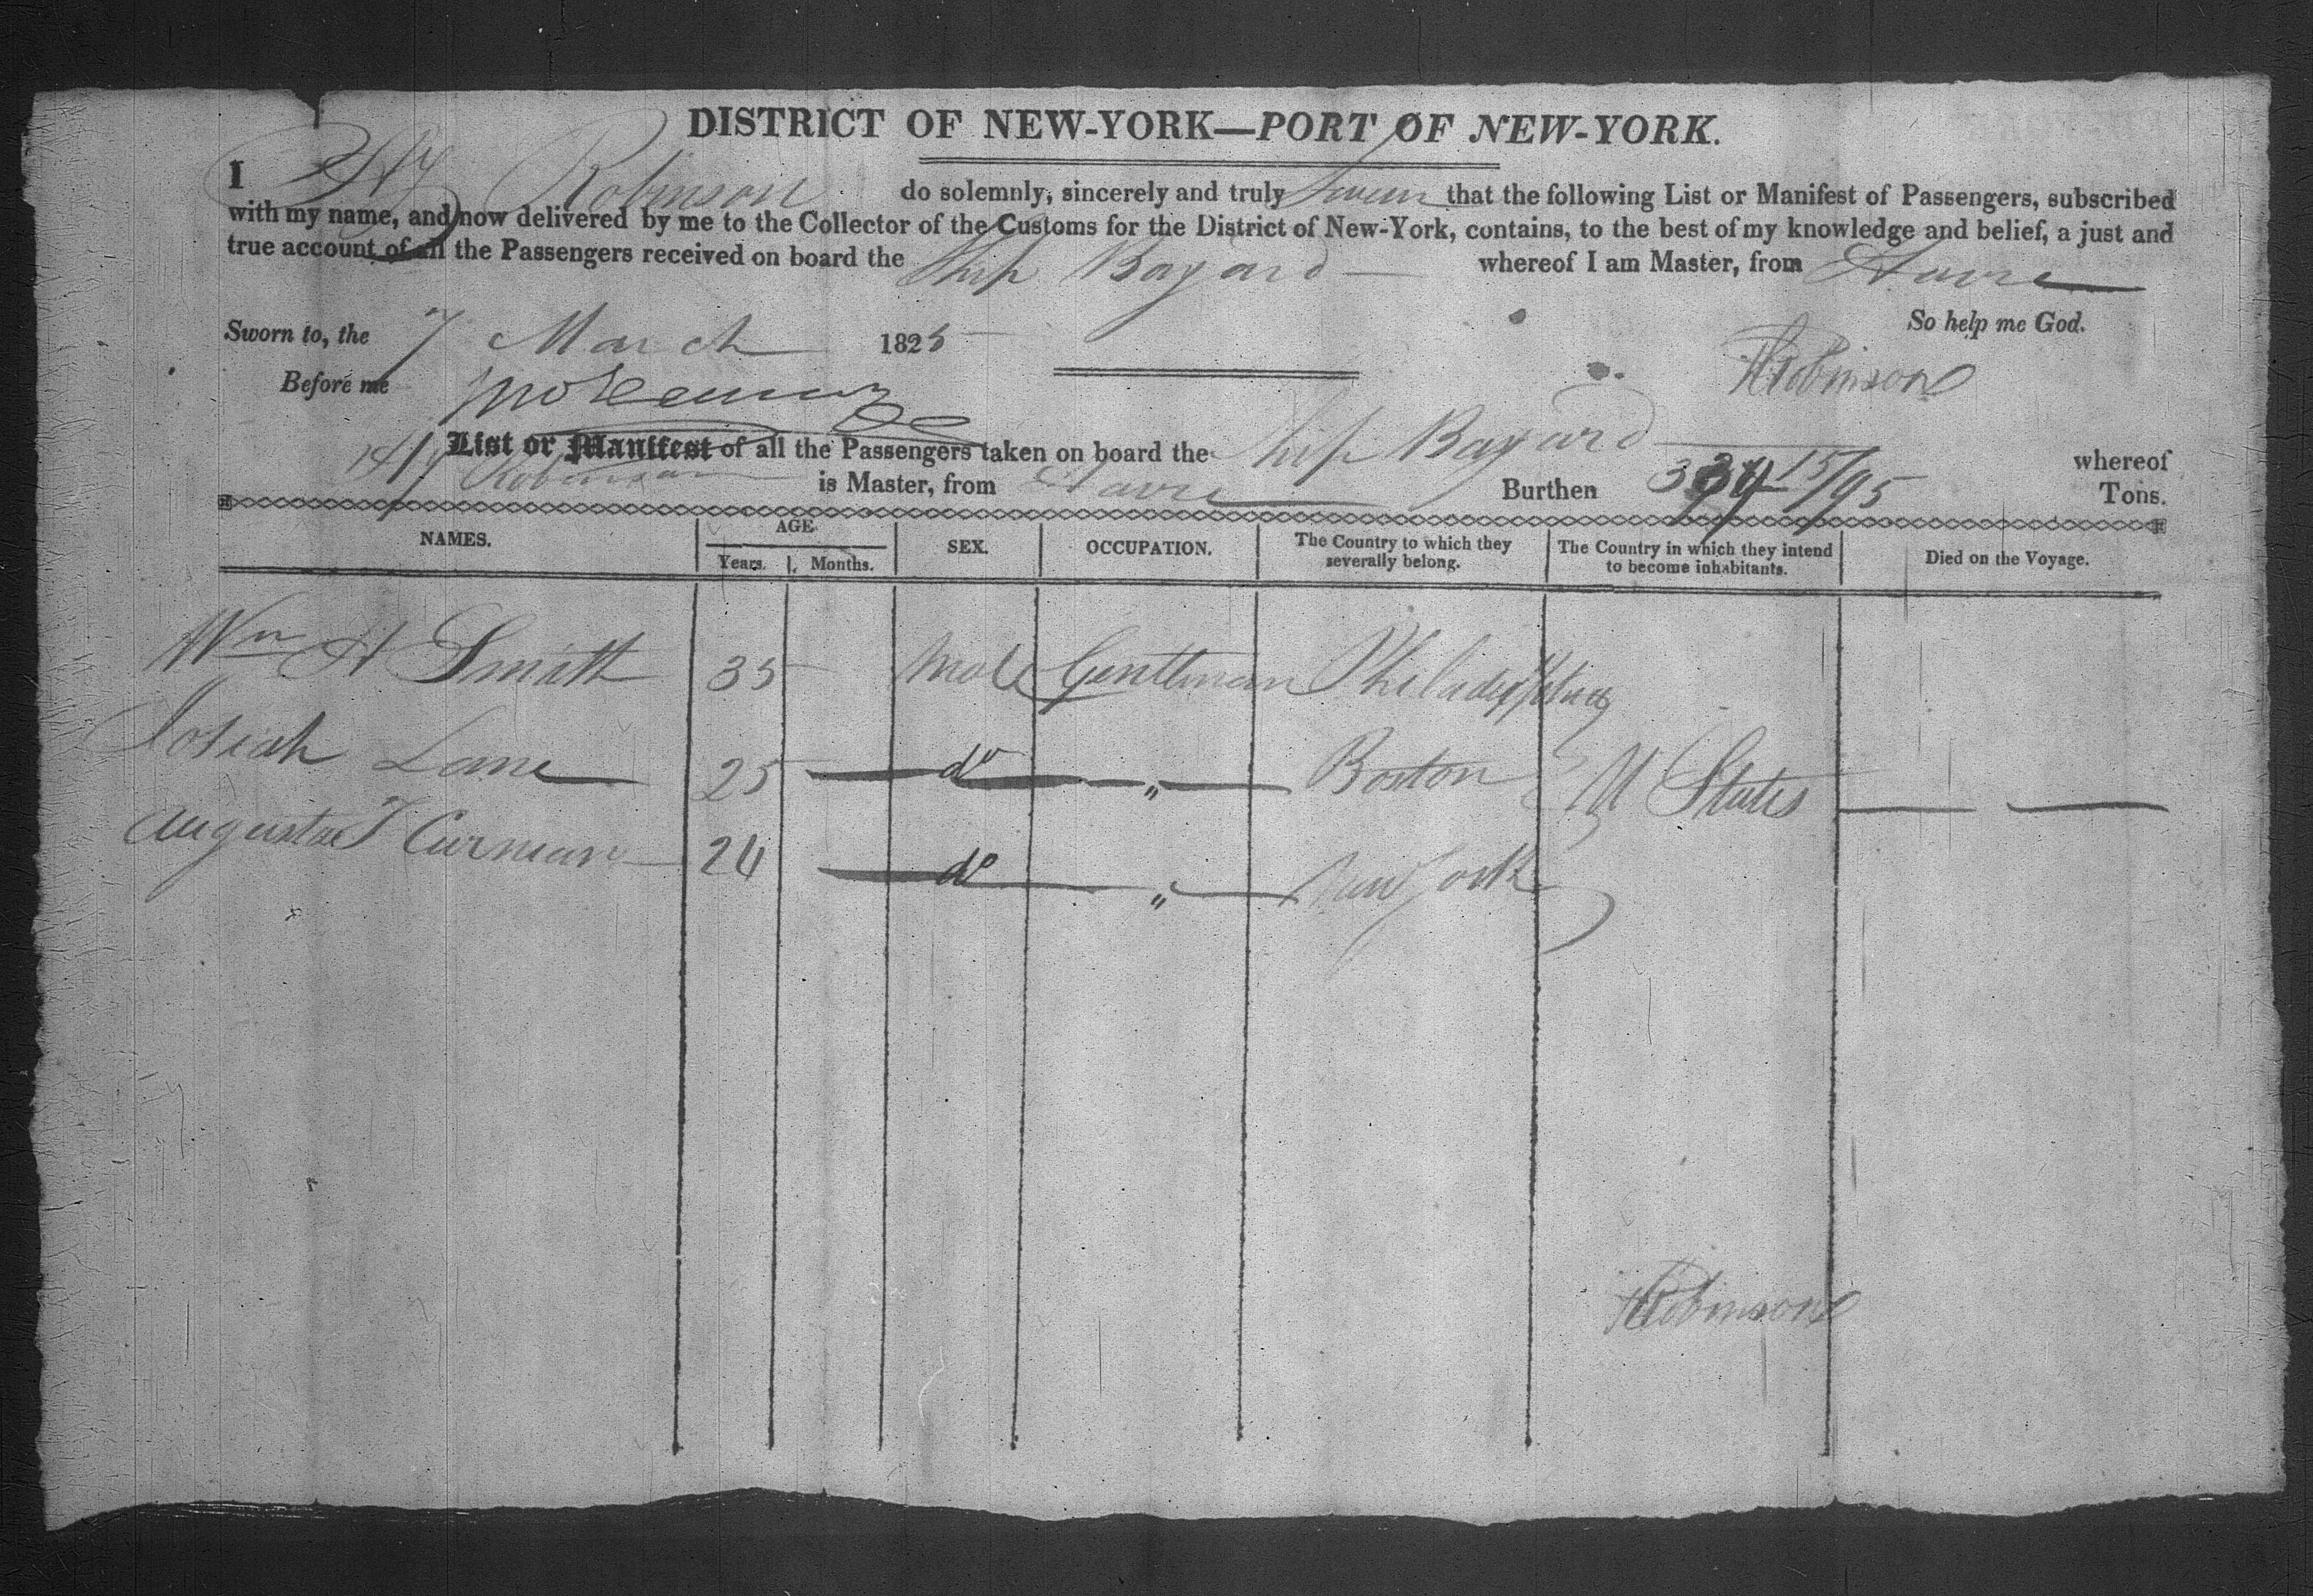 DISTRICT OF NEW-YORK—PORT OF NEW-YORK.
I Hy Robinson do solemnly, sincerely and truly swear that the following List or Manifest of Passengers, subscribed
with my name, and now delivered by me to the Collector of the Customs for the District of New-York, contains, to the best of my knowledge and belief, a just and
true account of all the Passengers received on board the Ship Bayard whereof I am Master, from Havre
So help me God.
Sworn to, the 7 March 1825
HRobinson
Before me
List or Manifest of all the Passengers taken on board the Ship Bayard whereof
Hy Robinson is Master, from Havre Burthen 339 15/95 Tons.
NAMES. AGE. SEX. OCCUPATION. The Country to which they severally belong. The Country in which they intend to become inhabitants. Died on the Voyage.
Years. Months.
Wm H Smith 35 Male Gentleman Philadelphia
Josiah Lane 25 do " Boston U States
Augustus F Curman 24 do " New York
HRobinson